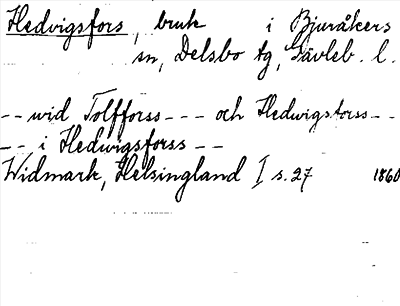 Hedvigsfors, bruk i Bjuråkers
sn, Delsbo tg, Gävleb. l.
-- wid Tolfforss --- och Hedwigsforss --
-- i Hedwigsforss --
Widmark, Helsingland I s. 27 1860